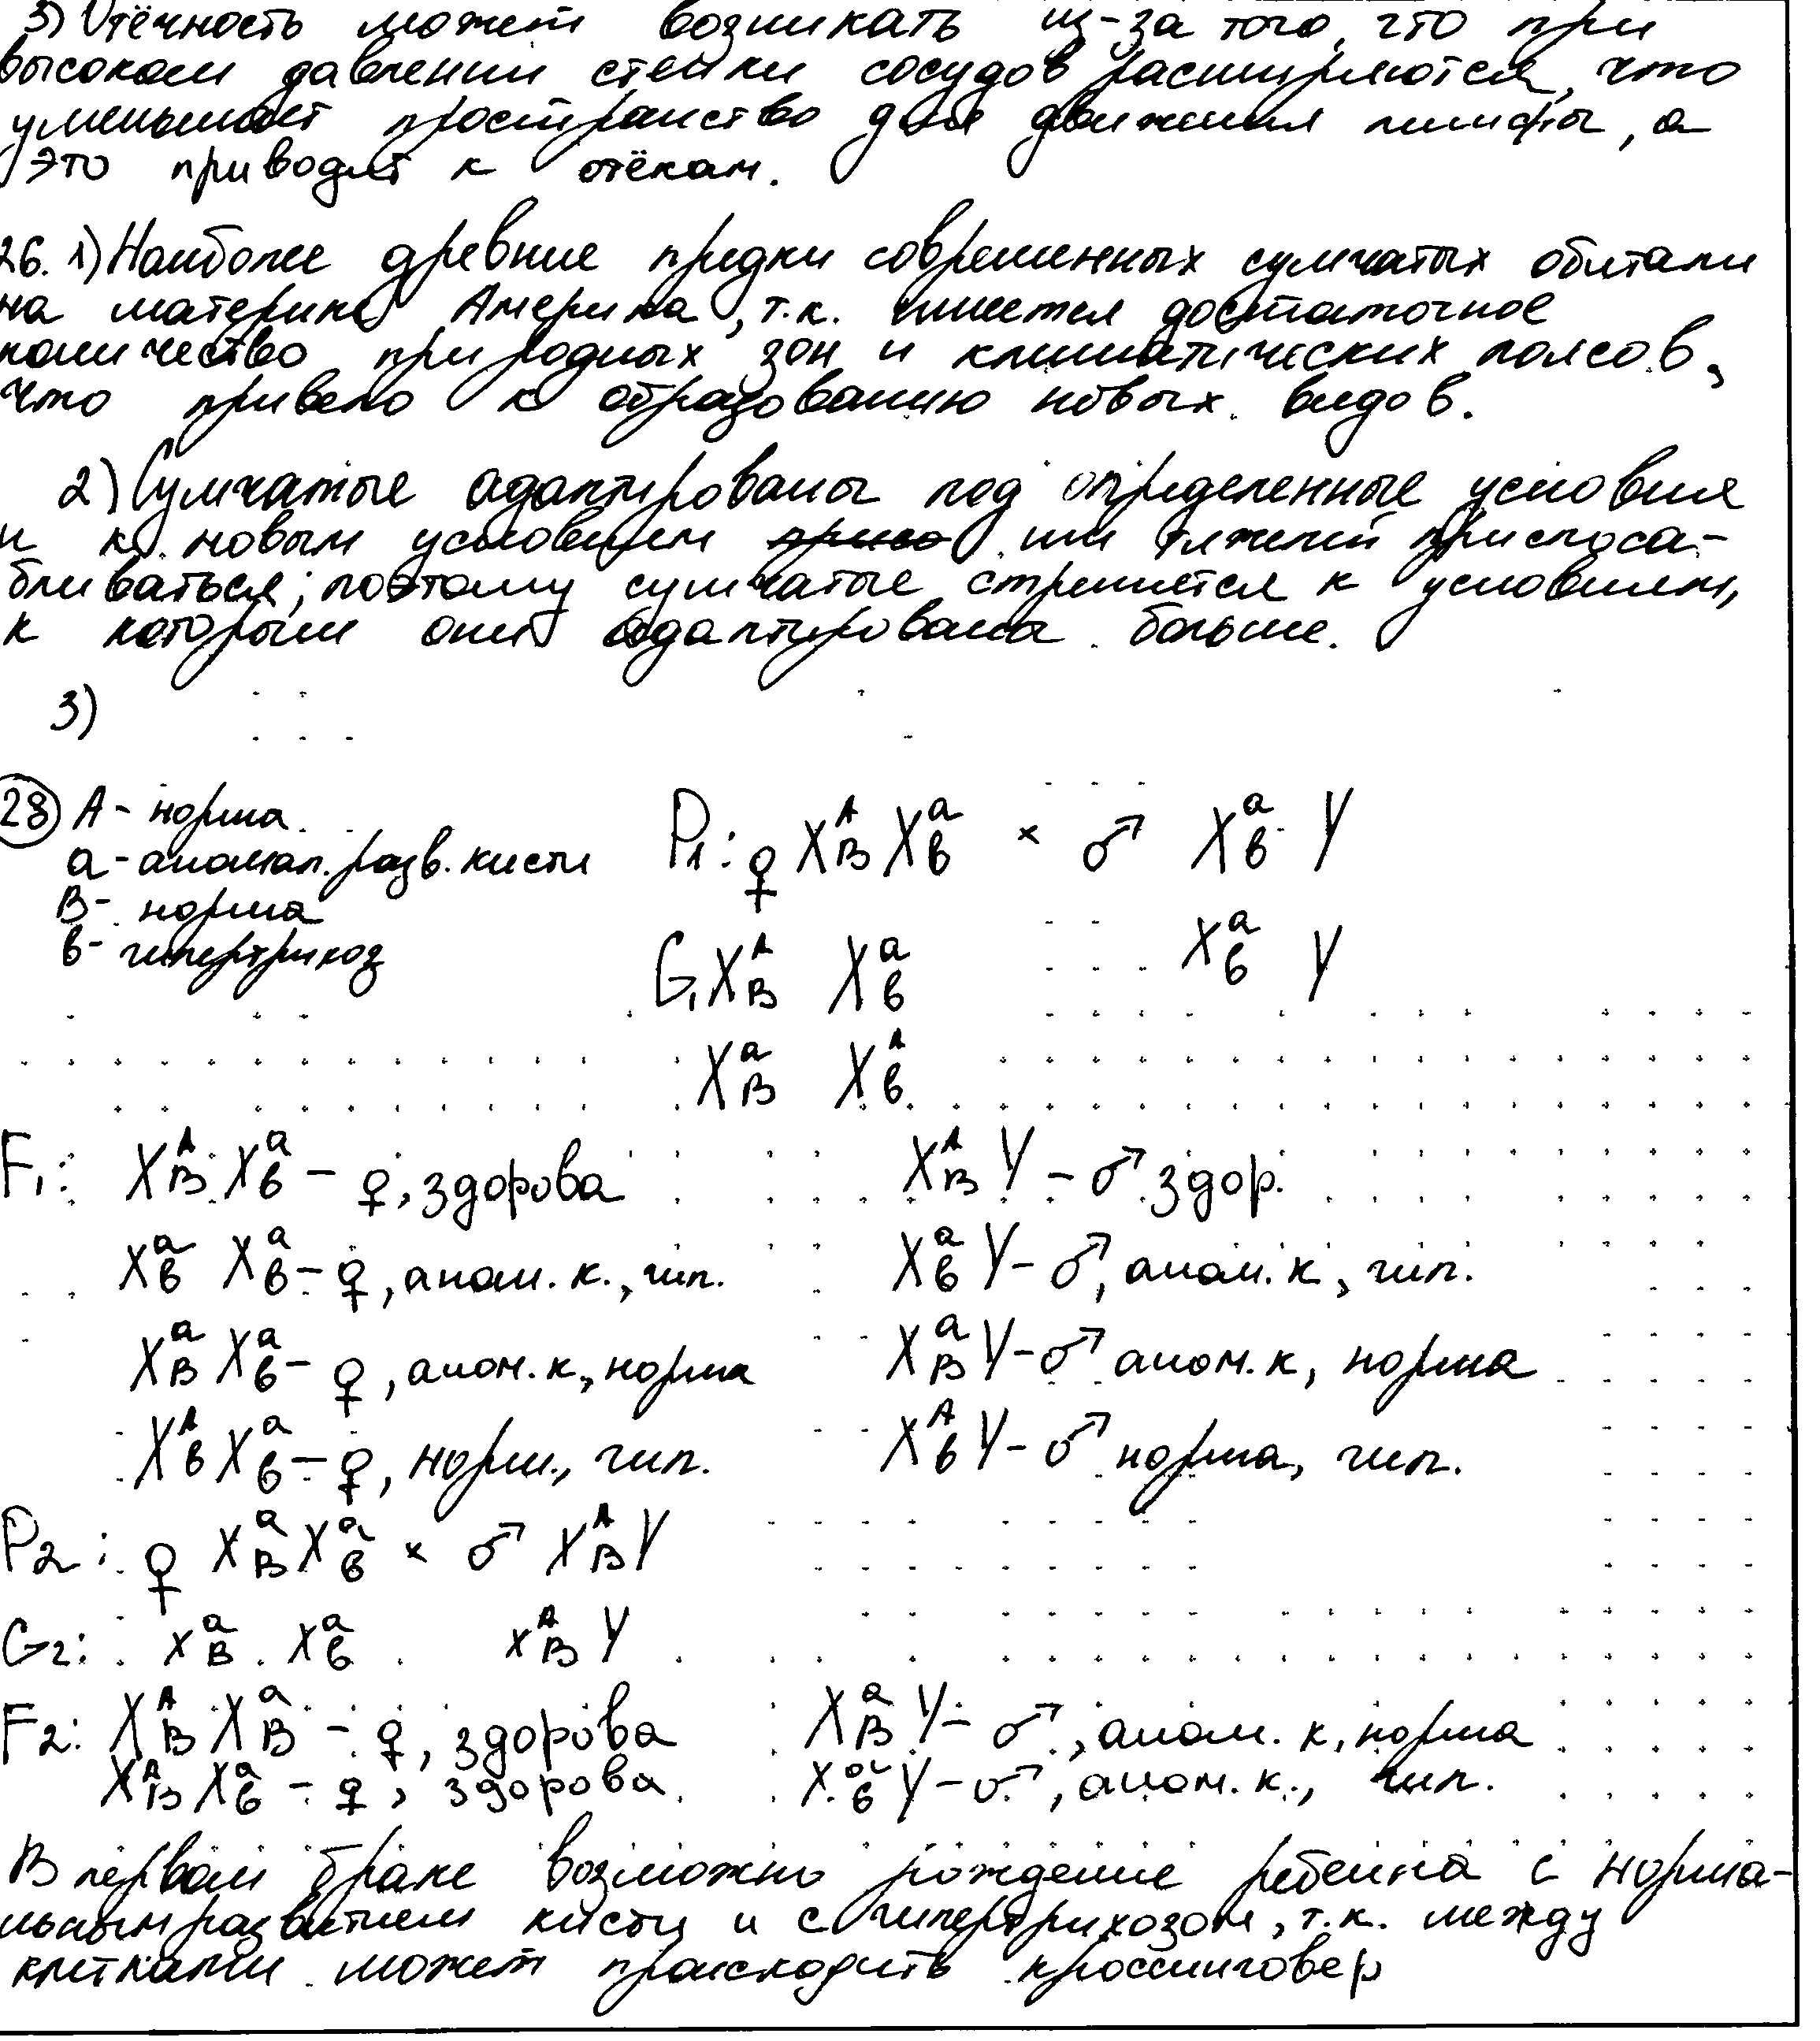 3) Отёчность может возникать из-за того, что при
высоком давлении стенки сосудов расширяются, что
уменьшает пространство для движения лимфы, а
это приводит к отёкам.
26. 1) Наиболее древние предки современных сумчатых обитали
на материке Америка, т.к. имеется достаточное
количество природных зон и климатических поясов,
что привело к образованию новых видов.
2) Сумчатые адаптированы под определенные условия
и к новым условиям им тяжелей приспоса-
бливаться; поэтому сумчатые стремятся к условиям,
к которым они адаптированы больше.
3)
28) А - норма
а - аномал. разв. кисти
В - норма
в - гипертрихоз
P₁: ♀ Xᴬ_B Xᵃ_в × ♂ Xᵃ_в Y
G₁ Xᴬ_B Xᵃ_в Xᵃ_в Y
Xᵃ_B Xᴬ_в
F₁: Xᴬ_B Xᵃ_в - ♀, здорова Xᴬ_B Y - ♂ здор.
Xᵃ_в Xᵃ_в - ♀, аном. к., гип. Xᵃ_в Y - ♂, аном. к, гип.
Xᵃ_B Xᵃ_в - ♀, аном. к., норма Xᵃ_B Y - ♂ аном. к, норма
Xᴬ_в Xᵃ_в - ♀, норм., гип. Xᴬ_в Y - ♂ норма, гип.
P₂: ♀ Xᵃ_B Xᵃ_в × ♂ Xᴬ_B Y
G₂: Xᵃ_B Xᵃ_в Xᴬ_B Y
F₂: Xᴬ_B Xᵃ_B - ♀, здорова Xᵃ_B Y - ♂, аном. к, норма
Xᴬ_B Xᵃ_в - ♀, здорова Xᵃ_в Y - ♂, аном. к., гип.
В первом браке возможно рождение ребенка с норма-
льным развитием кисти и с гипертрихозом, т.к. между
клетками может происходить кроссинговер